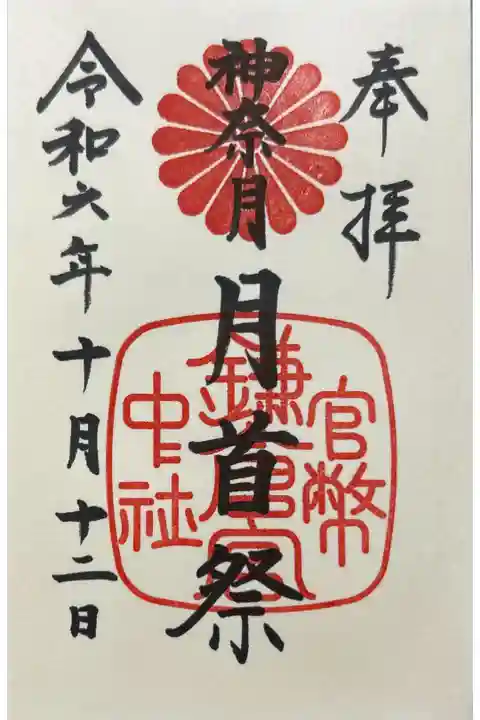 奉拝
神奈月
月首祭
官幣
鎌倉宮
中社
令和六年十月十二日